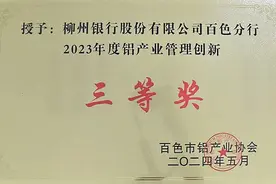 授予：柳州银行股份有限公司百色分行
2023年度铝产业管理创新
三等奖
百色市铝产业协会
二〇二四年五月